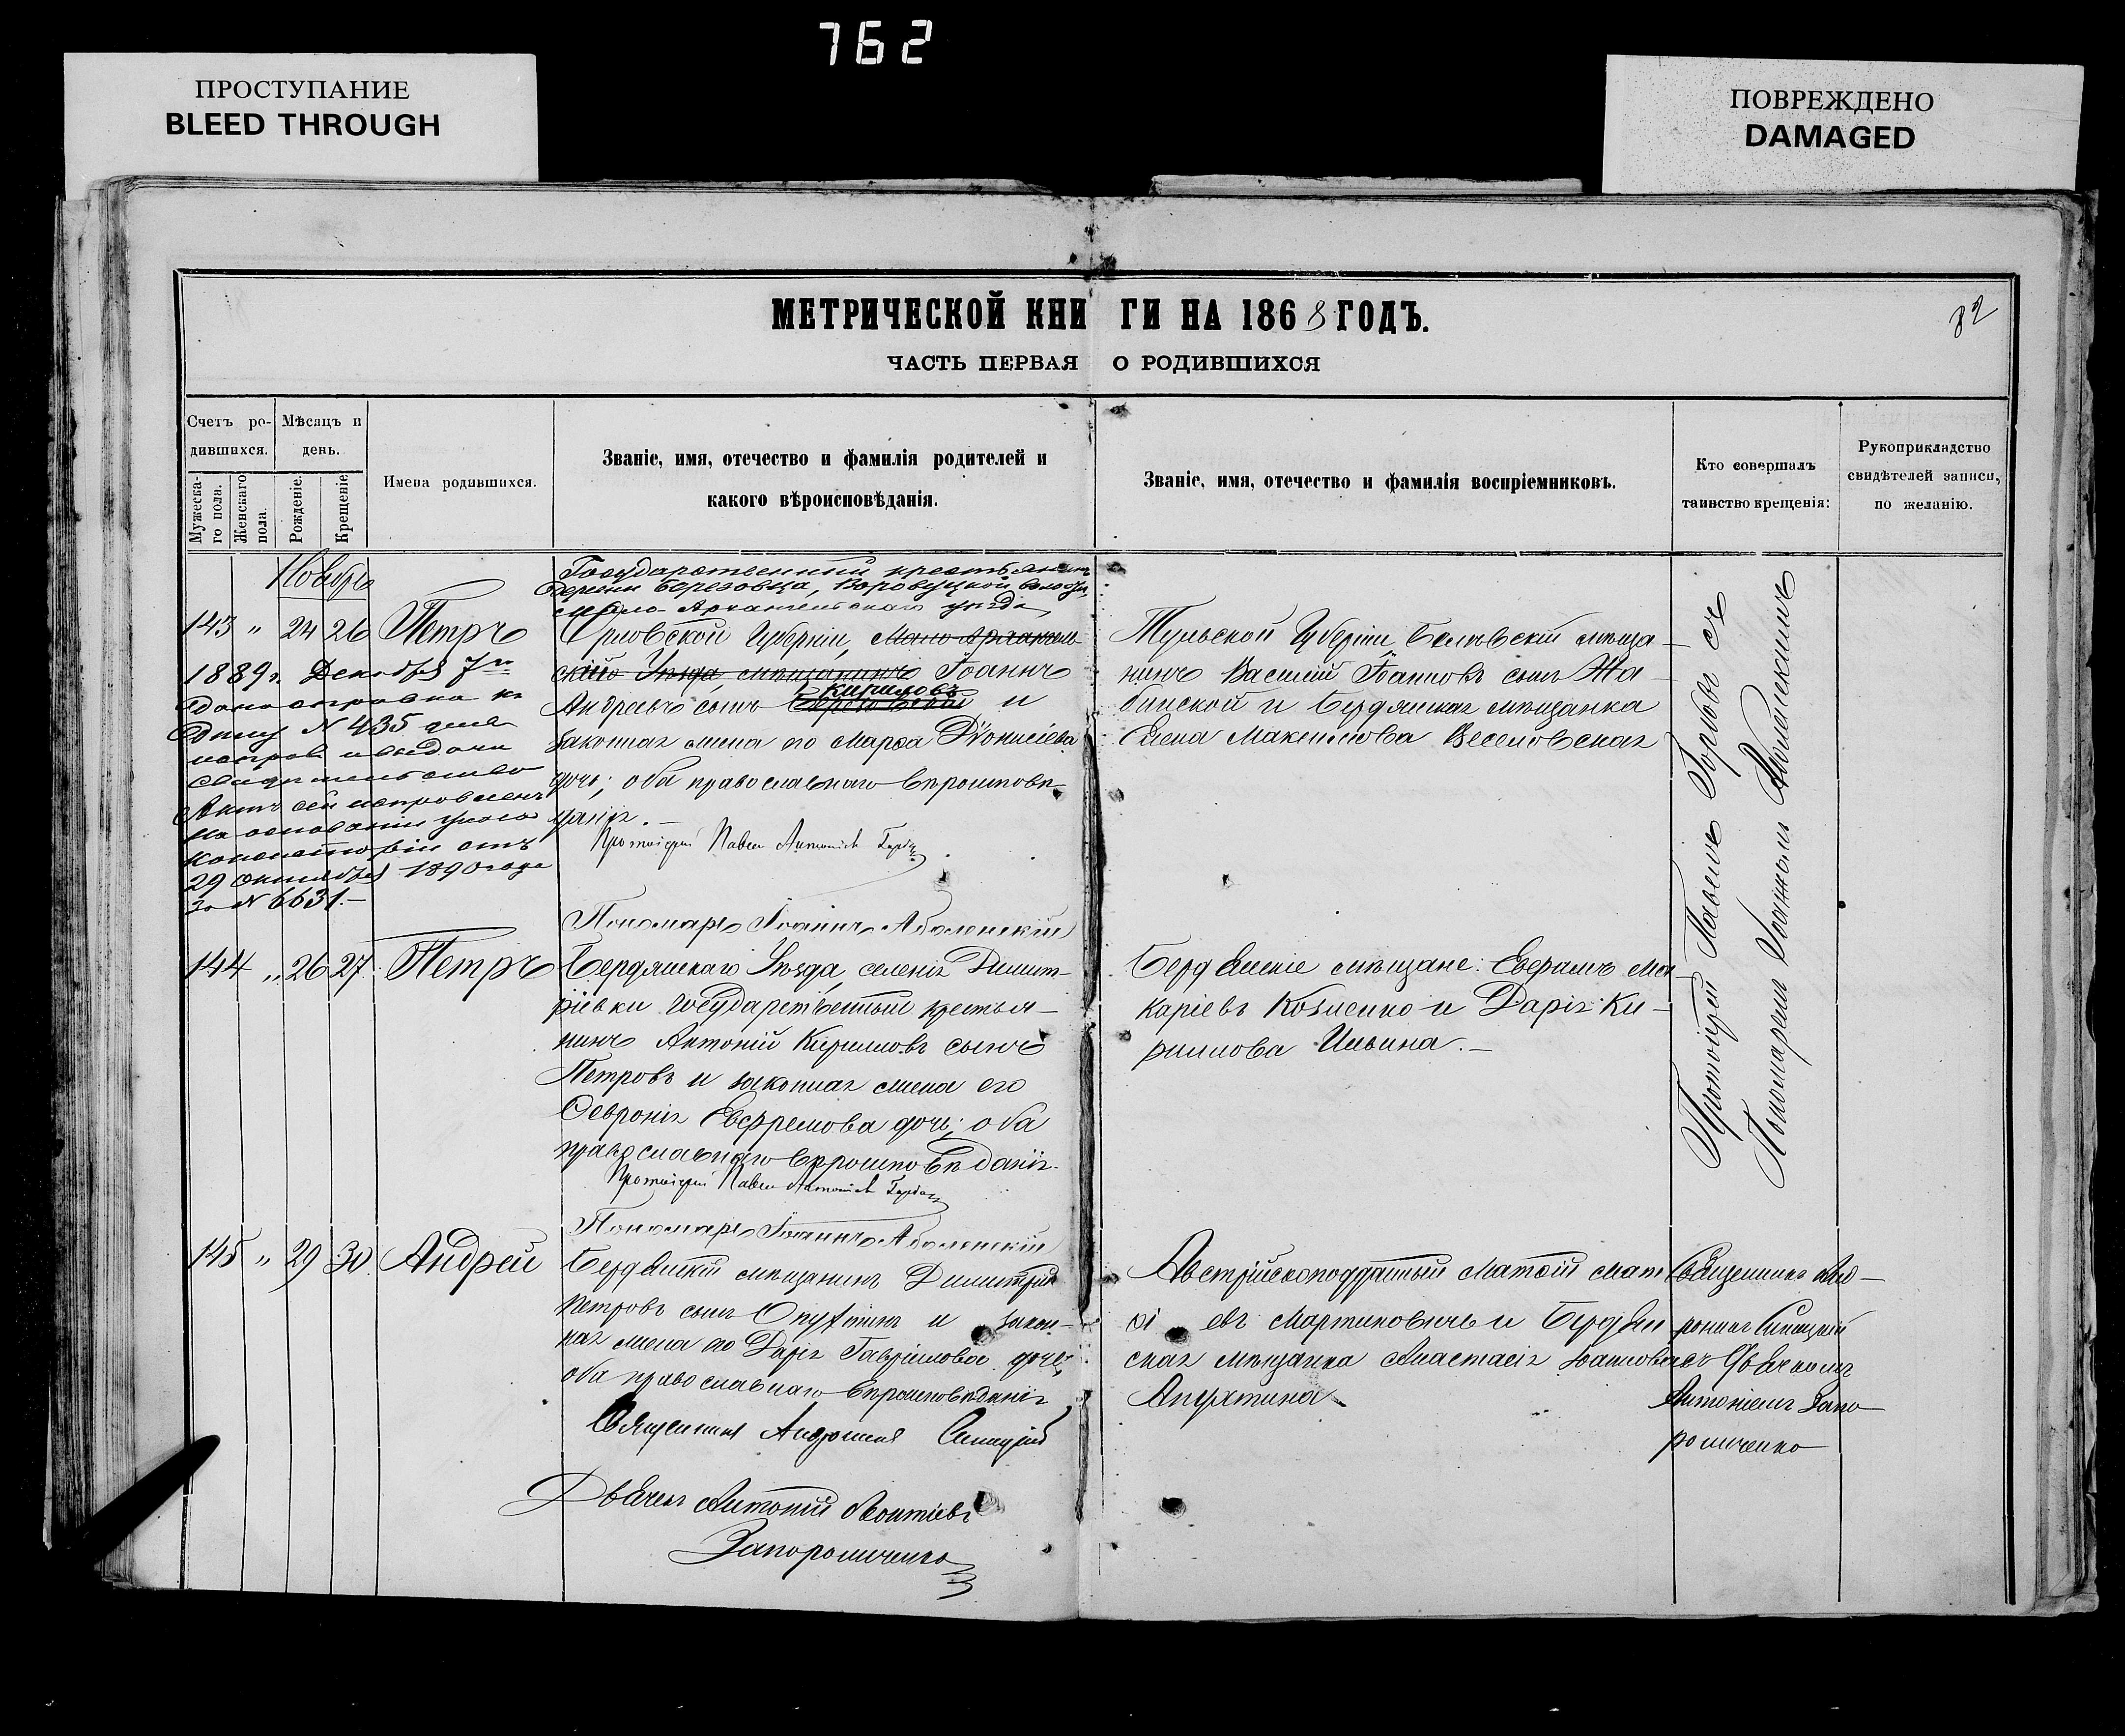 762
ПРОСТУПАНИЕ
BLEED THROUGH
ПОВРЕЖДЕНО
DAMAGED
МЕТРИЧЕСКОЙ КНИГИ НА 1868 ГОДЪ.
82
ЧАСТЬ ПЕРВАЯ О РОДИВШИХСЯ
Счетъ ро-
дившихся.
Мужеска-
го пола.
Женскаго
пола.
Мѣсяцъ и
день.
Рожденіе.
Крещеніе
Имена родившихся.
Званіе, имя, отечество и фамилія родителей и
какого вѣроисповѣданія.
Званіе, имя, отечество и фамилія воспріемниковъ.
Кто совершалъ
таинство крещенія:
Рукоприкладство
свидѣтелей записи,
по желанію.
Ноябрь
143 " 24 26 Петръ
1889г. Декабря 7го
дана справка къ
дѣлу N 435 для
исправ и выдачи
свидѣтельство
Актъ сей исправленъ
на основаніи указа
Консисторіи отъ
29 Октября 1890 года
За N 6631.-
Государственный крестьянинъ
деревни Березовца, волости,
Мало-Архангельскаго уѣзда,
Орловской Губерніи, Мало-Архангель-
скаго Уѣзда, мѣщанинъ Іоаннъ
Кириловъ
Андреевъ сынъ и
законная жена его Марѳа Діонисіева
дочь; оба православнаго вѣроисповѣ-
данія.-
Протоіерей Павелъ
Пономарь Іоаннъ Аболенскій
Тульской Губерніи, Белевскій мѣща-
нинъ Василій Іоанновъ сынъ Жа-
бинской и Бердянская мѣщанка
Елена Максимова Веселовская
Протоіерей Павелъ Горбовъ съ
Пономаремъ Іоанномъ Аболенскимъ
144 " 26 27. Петръ
Бердянскаго Уѣзда, селенія Димит-
ріевки государственный крестья-
нинъ Антоній Кирилловъ сынъ
Петровъ и законная жена его
Февронія Евфремова дочь; оба
православнаго вѣроисповѣданія.
Протоіерей Павелъ
Пономарь Іоаннъ Аболенскій
Бердянскіе мѣщане: Ефремъ Ма-
каріевъ Козленко и Дарія Ки-
риллова Ильина.-
145 " 29 30. Андрей
Бердянскій мѣщанинъ Димитрій
Петровъ сынъ Опухтинъ и закон-
ная жена его Дарія Гавріилова дочь;
оба православнаго вѣроисповѣданія
Священникъ Андроникъ Синицкій
Дьячекъ Антоній Леонтіевъ
Запорожченко
Австрійскоподданный Матѳій Мат
ѳі евъ Мартиновичь и Бердян
ская мѣщанка Анастасія Іоаннова
Апухтина
Священникъ Анд-
роникъ Синицкій
съ Дьячкомъ
Антоніемъ Запо-
рожченко